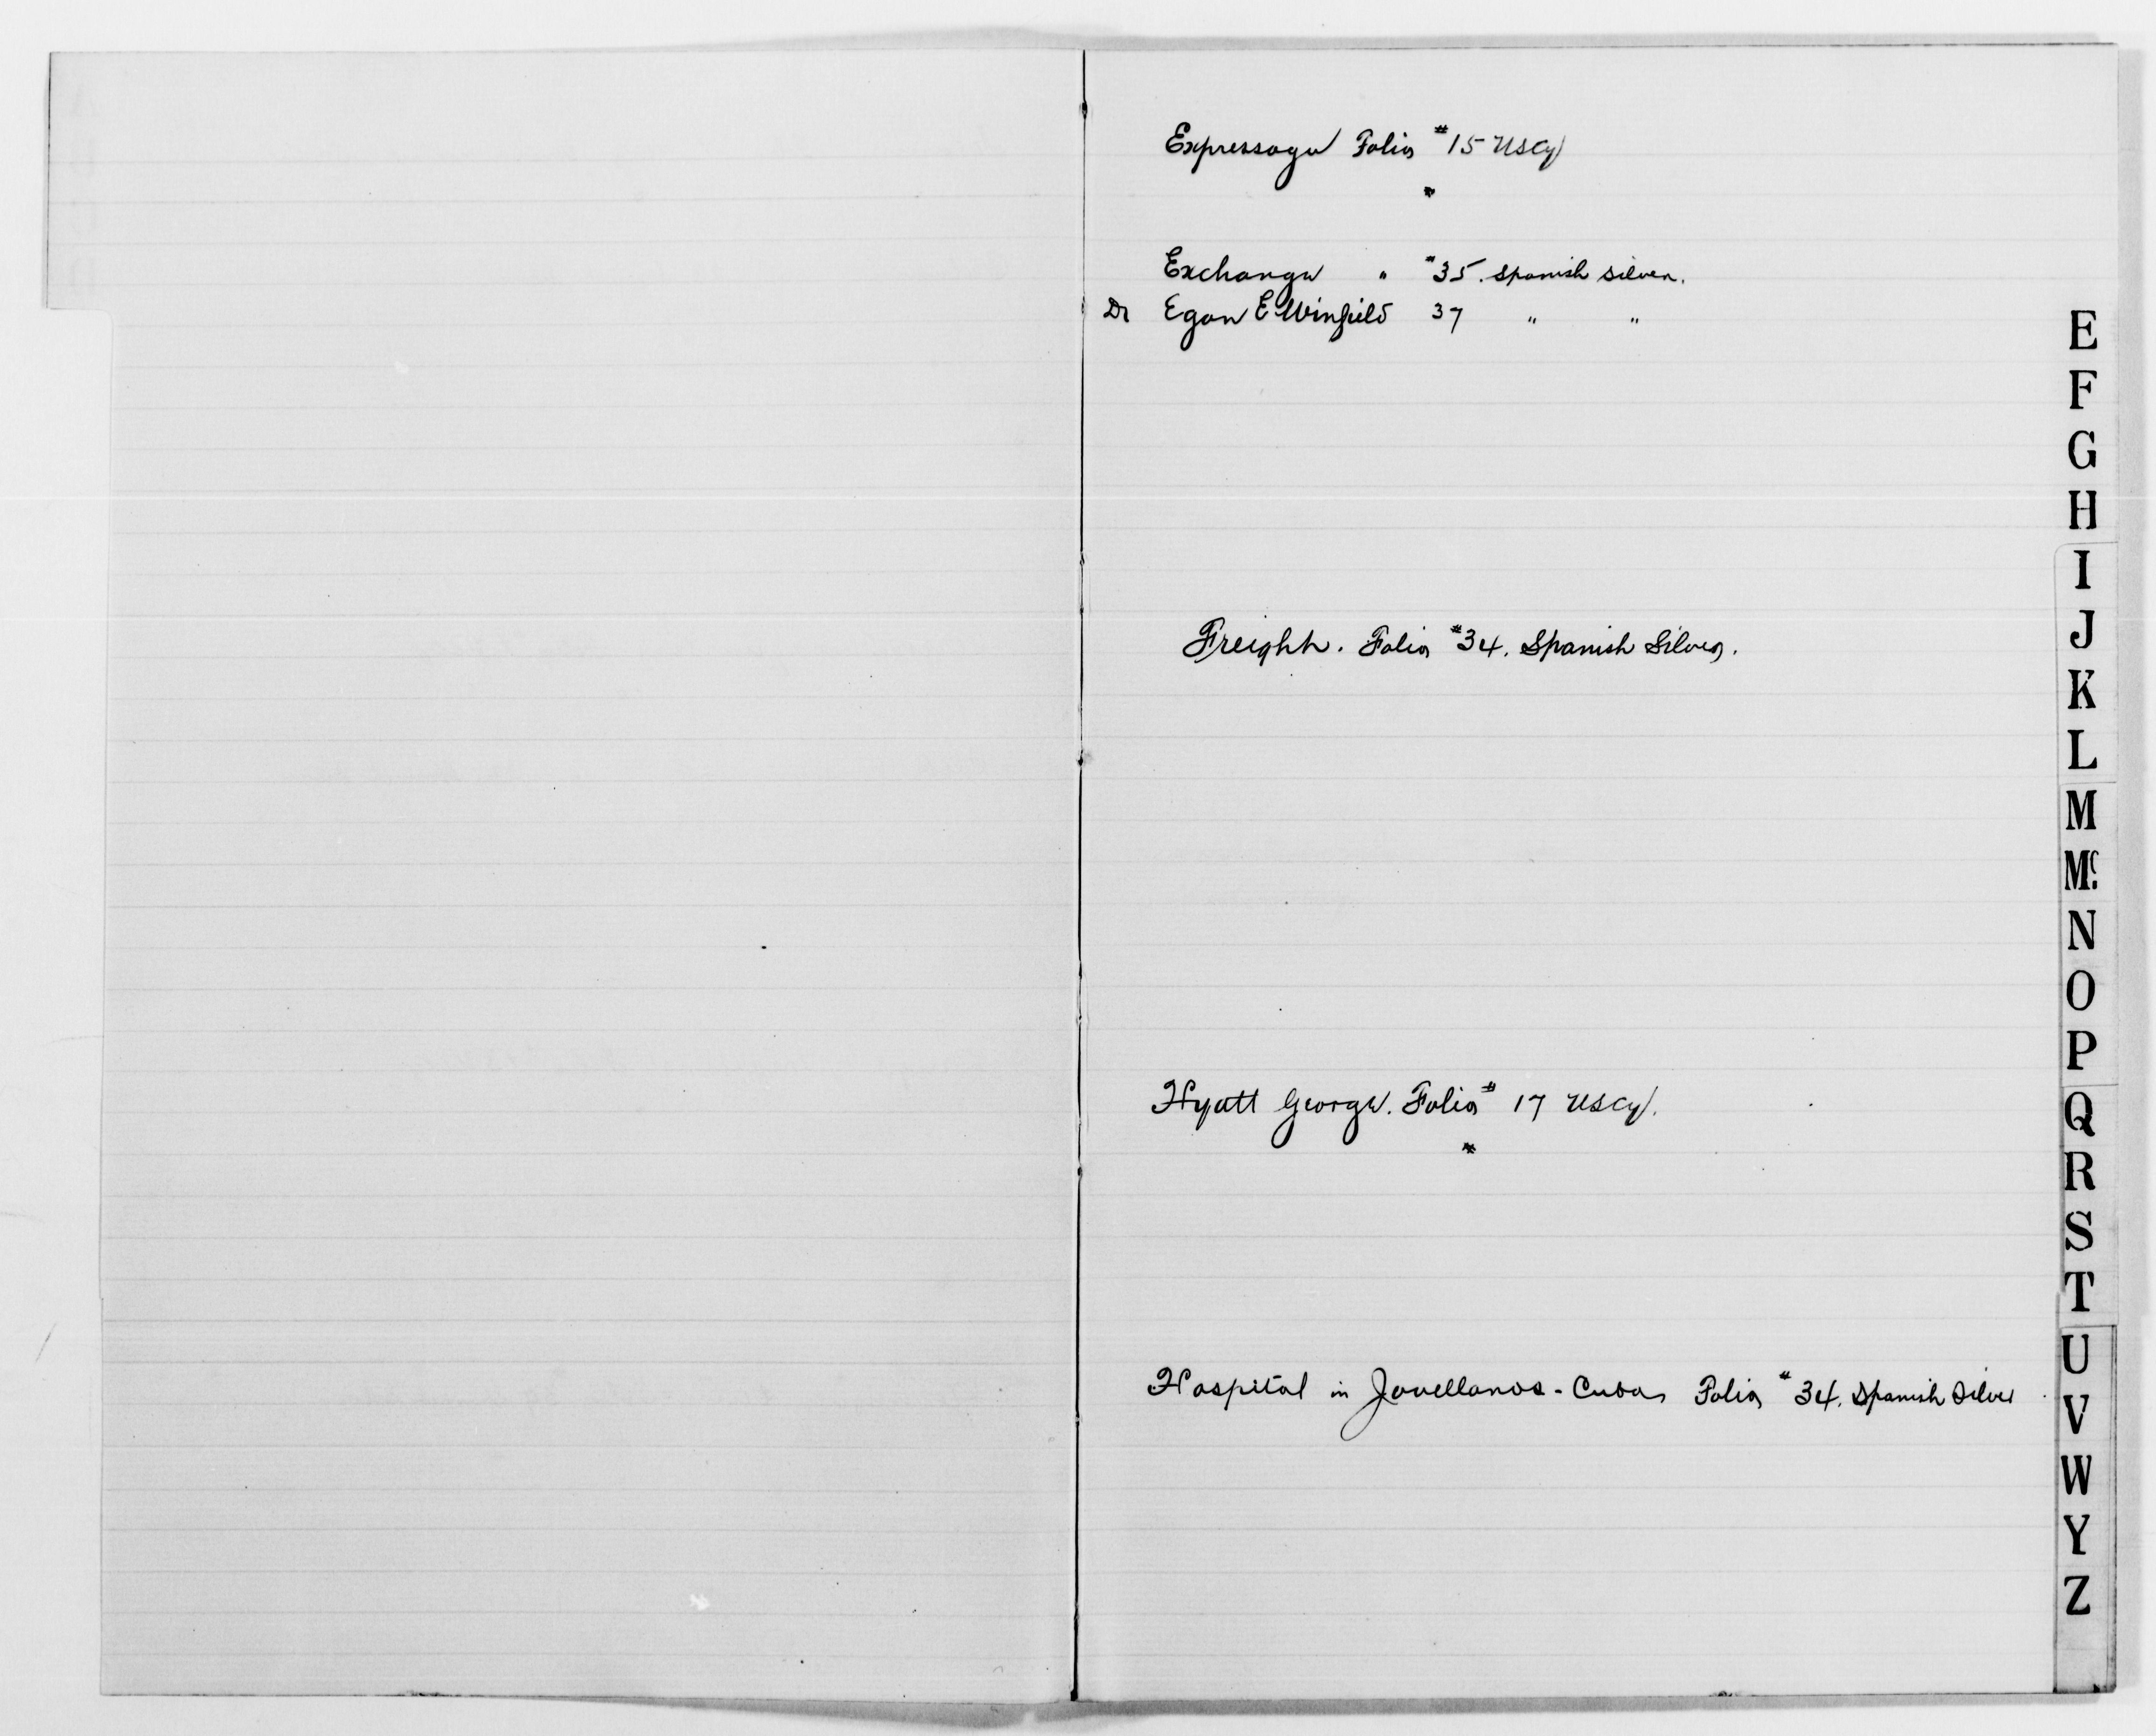 Expressage Folio #15 USCy
Exchange " #35. Spanish Silver.
Dr Egan E Winfield 37 " "
Freight. Folio #34. Spanish Silver.
Hyatt George. Folio # 17 USCy.
Hospital in Jovellanos - Cuba Folio # 34. Spanish Silver
E
F
G
H
I
J
K
L
M
Mc.
N
O
P
Q
R
S
T
U
V
W
Y
Z